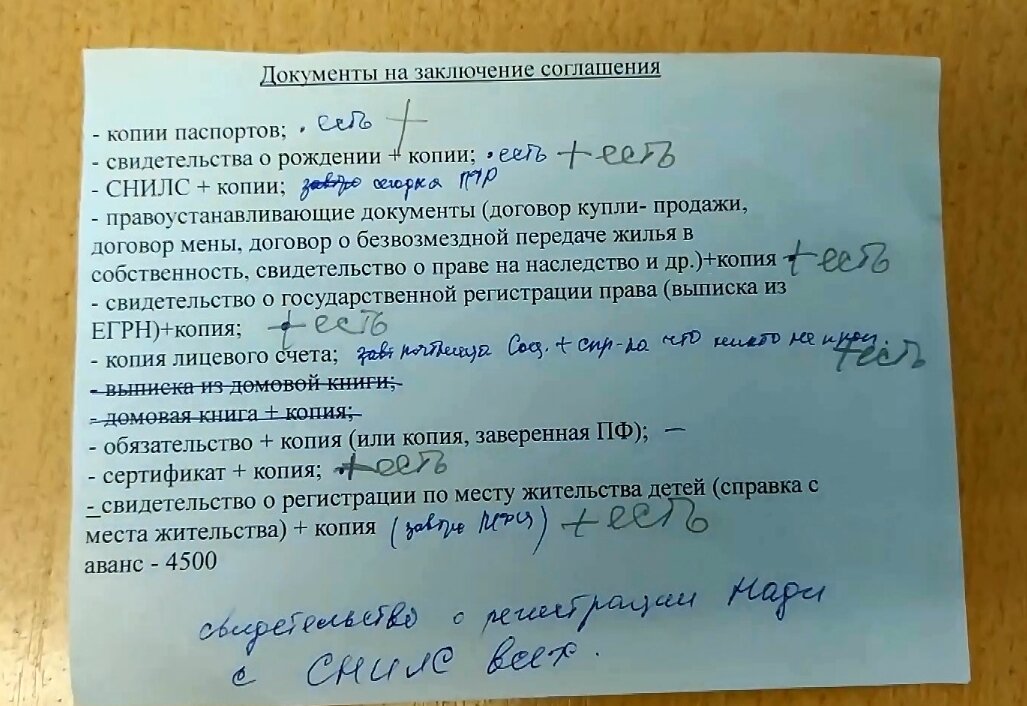 Документы на заключение соглашения
- копии паспортов; • есть +
- свидетельства о рождении + копии; • есть + есть
- СНИЛС + копии; завтро
- правоустанавливающие документы (договор купли- продажи,
договор мены, договор о безвозмездной передаче жилья в
собственность, свидетельство о праве на наследство и др.)+копия + есть
- свидетельство о государственной регистрации права (выписка из
ЕГРН)+копия; + есть
- копия лицевого счета; завт пятница Соц. + спр-ка что никто не
+ есть
- выписка из домовой книги;
- домовая книга + копия;
- обязательство + копия (или копия, заверенная ПФ); —
- сертификат + копия; + есть
- свидетельство о регистрации по месту жительства детей (справка с
места жительства) + копия (завтро МФЦ) + есть
аванс - 4500
свидетельство о регистрации Нади
с СНИЛС всех.